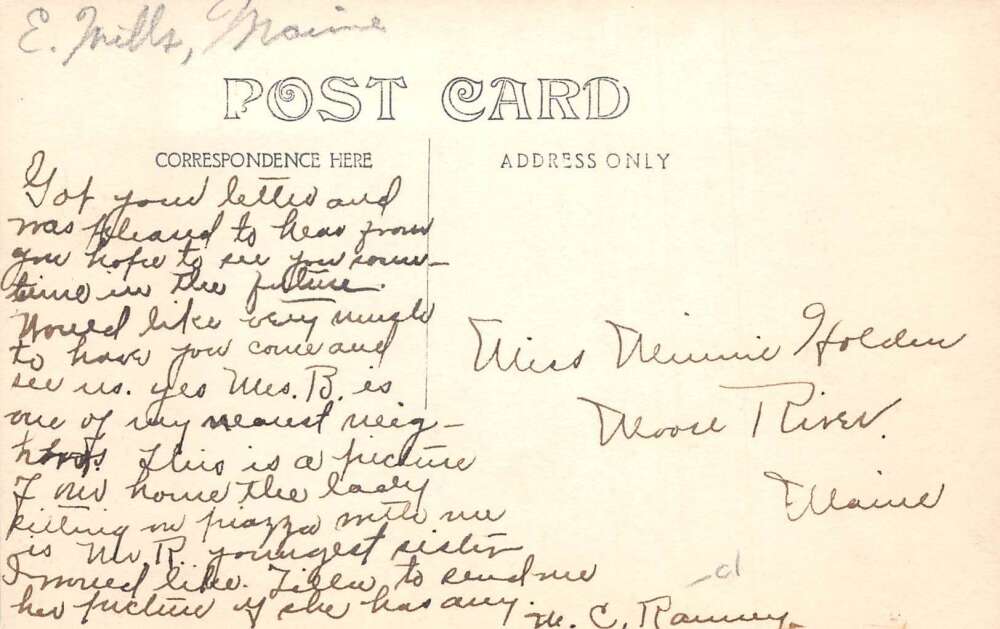 E. Mills, Maine
POST CARD
CORRESPONDENCE HERE
ADDRESS ONLY
Got your letter and
was pleased to hear from
you hope to see you some-
time in the future.
Would like very much
to have you come and
see us. yes Mrs. B. is
one of my nearest neig-
hbors. This is a picture
of our home the lady
sitting on piazza with me
is Mr. R. youngest sister
I would like to send me
her picture if she has any.
M. C. Ranney.
Miss Minnie Holden
Moose River.
Maine